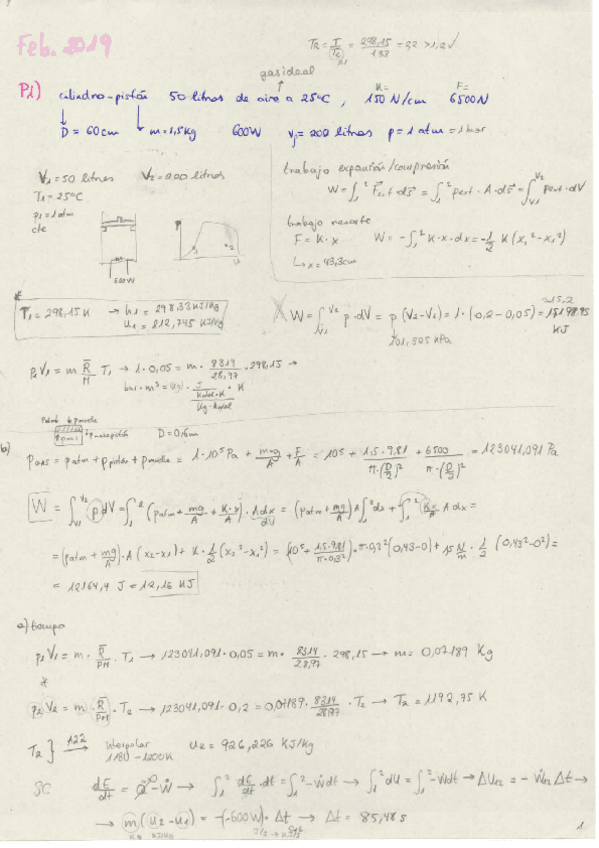 Feb. 2019
TR = T/Tc = 298,15/133 = 2,2 > 1,2 ✓
gas ideal
P1) cilindro-pistón 50 litros de aire a 25°C, K= 150 N/cm F= 6500N
D = 60cm m=1,5Kg 600W Vf = 200 litros p = 1 atm = 1 bar
V1 = 50 litros V2 = 200 litros
T1 = 25°C
p1 = 1 atm
cte
600W
trabajo expansión/compresión
W = ∫₁² F⃗ext · ds⃗ = ∫₁² pext · A · ds⃗ = ∫V1^V2 pext · dV
trabajo resorte
F = K · x W = -∫₁² K·x·dx = -1/2 K (x₂² - x₁²)
↳ x = 43,3cm
* T1 = 298,15 K → h1 = 298,33 KJ/Kg
u1 = 212,745 KJ/Kg
W = ∫V1^V2 p·dV = p (V2-V1) = 1·(0,2-0,05) = 15198,75
≈15,2 KJ
101,325 kPa
p1 V1 = m R̅/M T1 → 1·0,05 = m · 8314/28,97 · 298,15 →
bar · m³ = (Kg) · J/Kmol·K / Kg/Kmol · K
Patm
b) pgas = patm + ppistón + pmuelle = 1·10⁵ Pa + m·g/A + F/A = 10⁵ + 1,5·9,81/π·(D/2)² + 6500/π·(D/2)² = 123041,091 Pa
W = ∫V1^V2 p dV = ∫₁² (patm + mg/A + K·x/A) · A dx = (patm + mg/A) A ∫₁² dx + ∫₁² Kx/A A dx =
dV
= (patm + mg/A) · A (x2-x1) + K · 1/2 (x₂² - x₁²) = (10⁵ + 1,5·9,81/π·0,3²) · π·0,3² (0,43-0) + 15 N/m · 1/2 (0,43²-0²) =
= 12164,7 J = 12,16 KJ
a) tiempo
p1 V1 = m · R̅/PM · T1 → 123041,091 · 0,05 = m · 8314/28,97 · 298,15 → m = 0,07189 Kg
*
p2 V2 = m · R̅/PM · T2 → 123041,091 · 0,2 = 0,07189 · 8314/28,97 · T2 → T2 = 1192,75 K
T2 } A22 → interpolar u2 = 926,226 KJ/Kg
1180 - 1200K
SC dE/dt = Q̇ - Ẇ → ∫₁² dE/dt · dt = ∫₁² -Ẇdt → ∫₁² dU = ∫₁² -Ẇdt → ΔU12 = -Ẇ12 Δt →
→ m (u2 - u1) = -(-600W) · Δt → Δt = 85,48 s
Kg KJ/Kg J/s → KJ/s
1